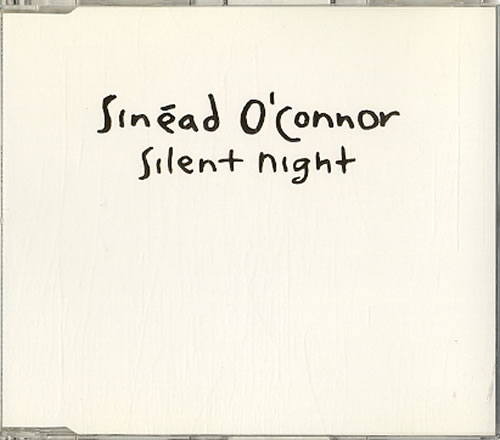 Sinéad O'Connor
Silent night